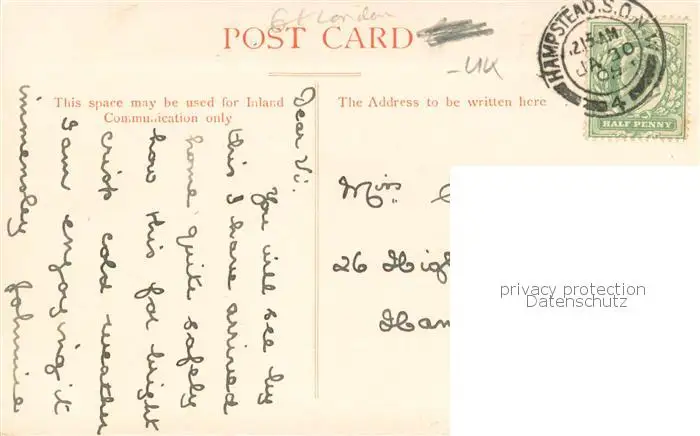 Gt London
POST CARD
-UK
HAMPSTEAD.S.O.N.W.
12.15 AM
JA 30
09
4
HALF PENNY
This space may be used for Inland
Communication only
The Address to be written here
Dear Vi.
You will see by
this I have arrived
home quite safely
how this for bright
crisp cold weather
I am enjoying it
immensley Johnnie
Miss
26 Hig
Ham
privacy protection
Datenschutz